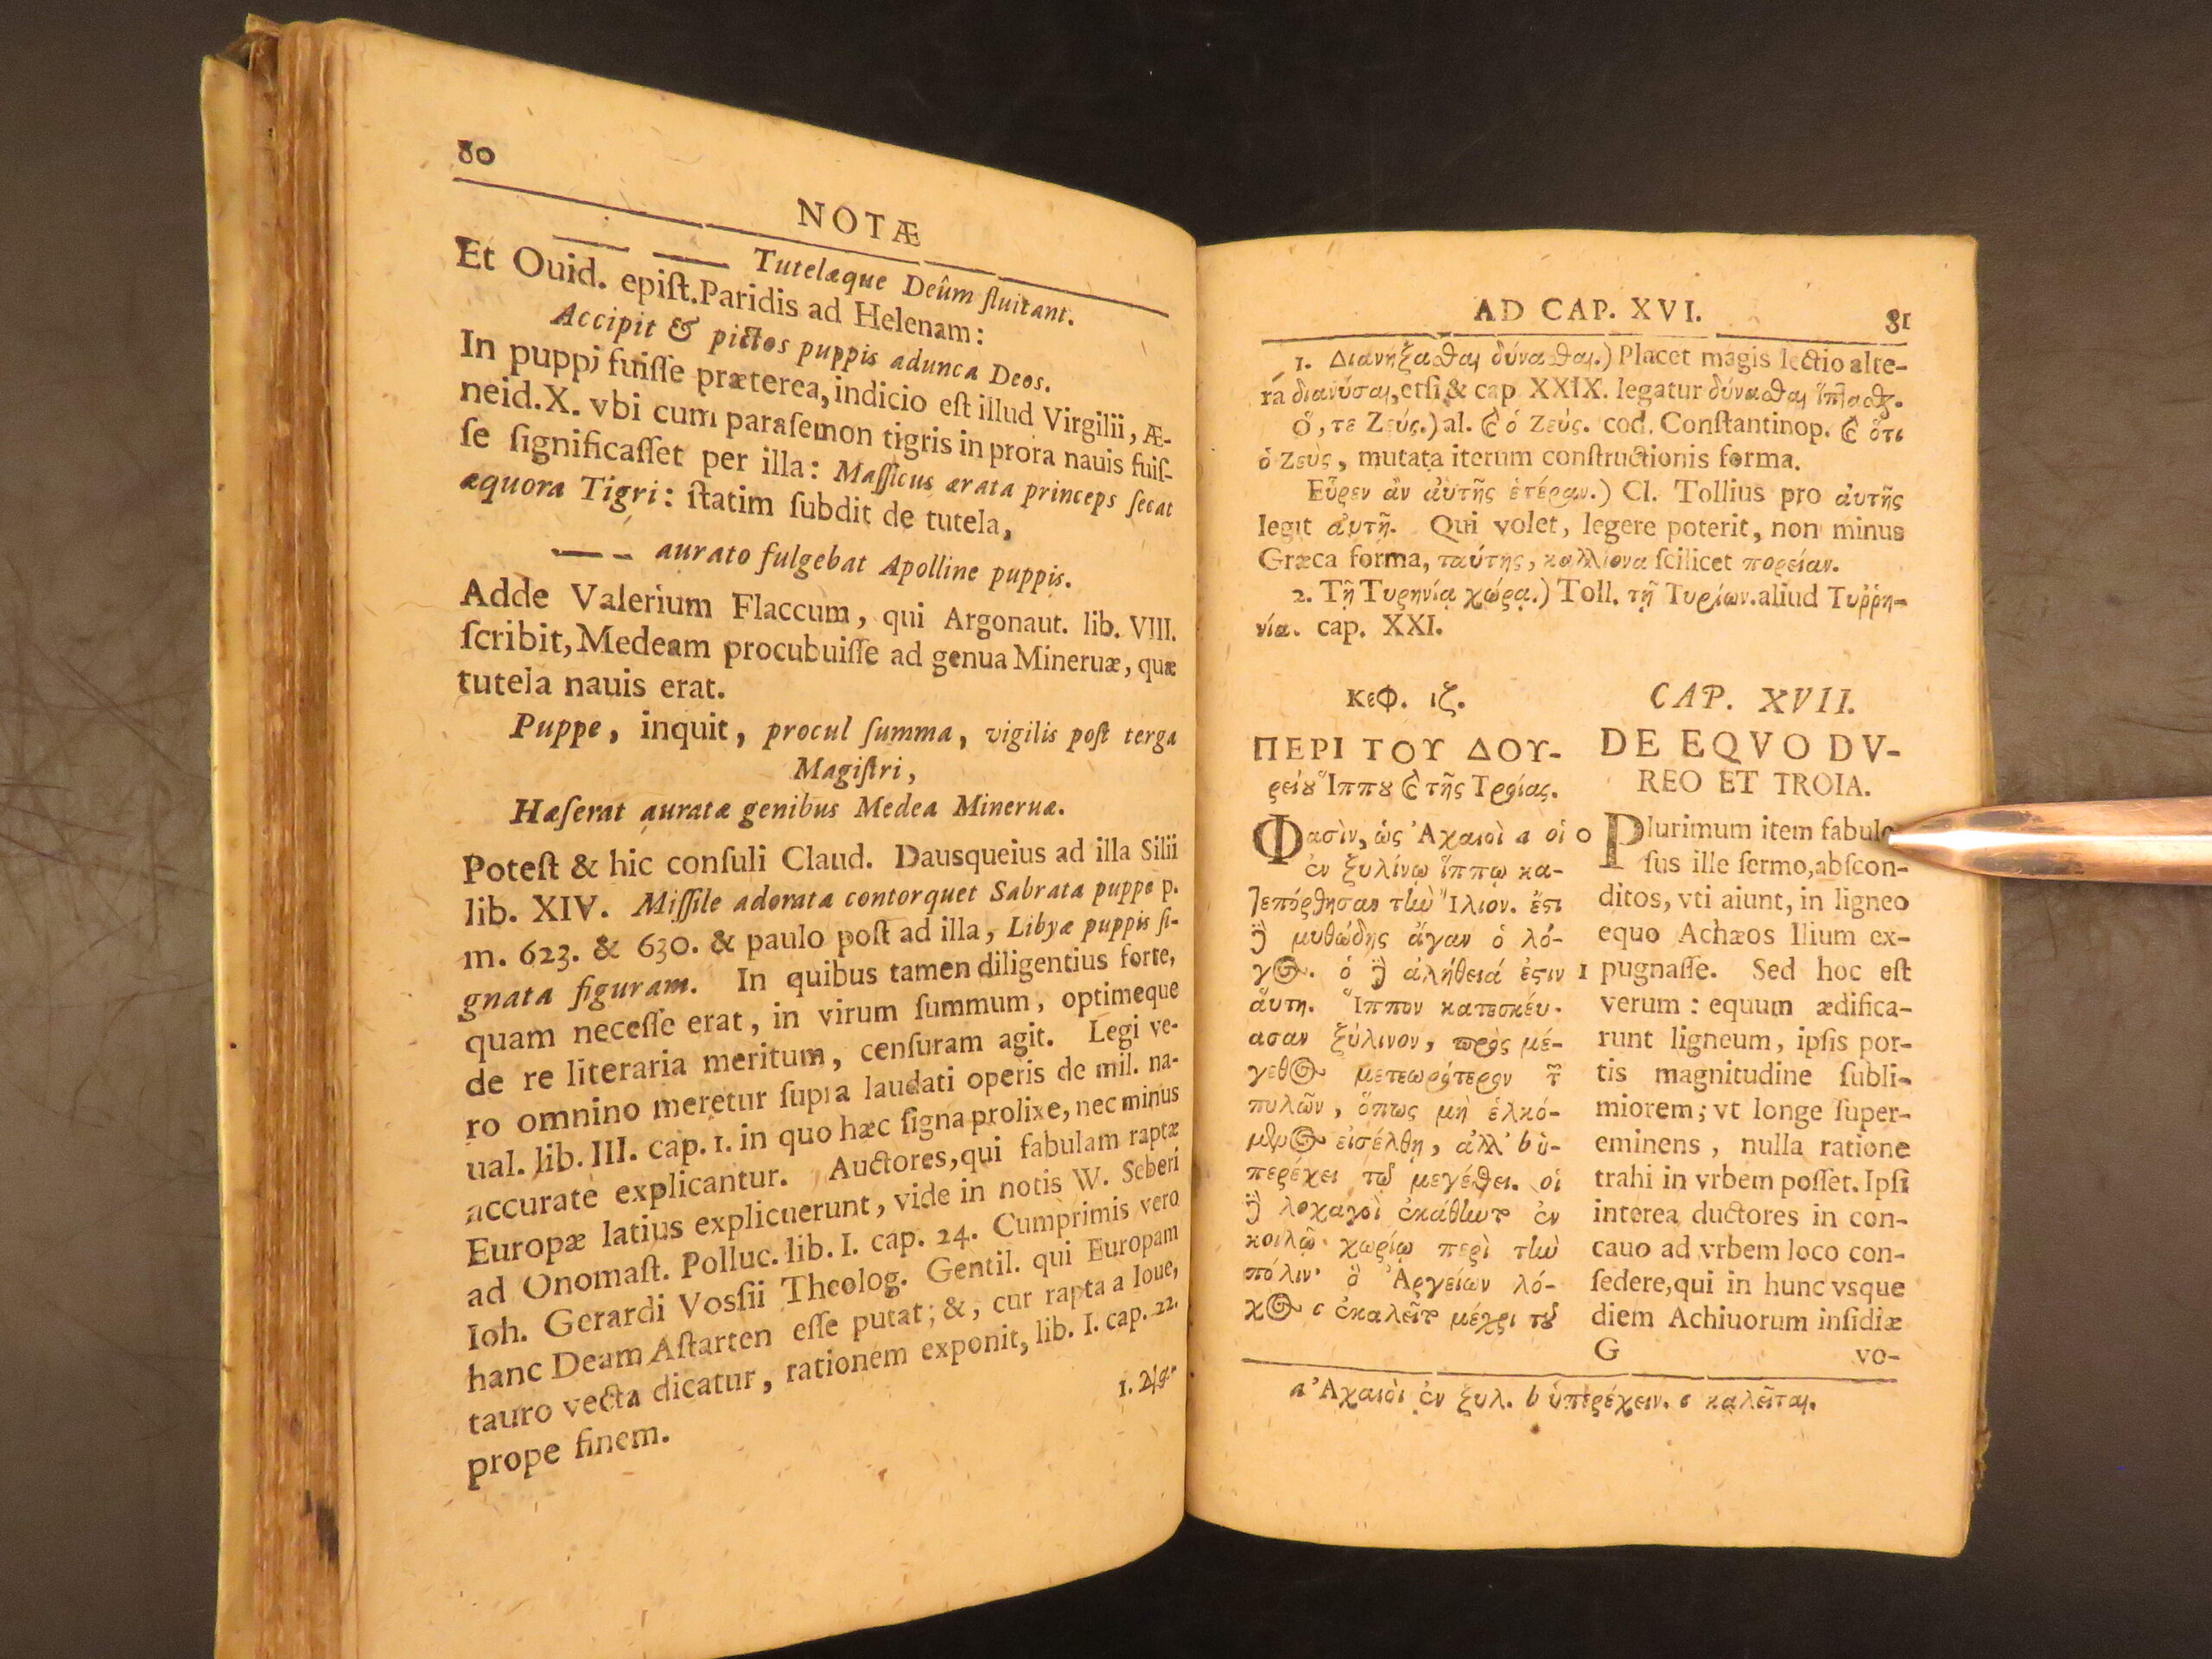 80
NOTÆ
Tutelæque Deûm fluitant.
Et Ouid. epiſt. Paridis ad Helenam:
Accipit & pictos puppis adunca Deos.
In puppi fuiſſe præterea, indicio eſt illud Virgilii, Æ-
neid. X. vbi cum paraſemon tigris in prora nauis fuiſ-
ſe ſignificaſſet per illa: Maſſicus ærata princeps ſecat
æquora Tigri: ſtatim ſubdit de tutela,
aurato fulgebat Apolline puppis.
Adde Valerium Flaccum, qui Argonaut. lib. VIII.
ſcribit, Medeam procubuiſſe ad genua Mineruæ, quæ
tutela nauis erat.
Puppe, inquit, procul ſumma, vigilis poſt terga
Magiſtri,
Hæſerat auratæ genibus Medea Mineruæ.
Poteſt & hic conſuli Claud. Dausqueius ad illa Silii
lib. XIV. Miſſile adorata contorquet Sabrata puppe p.
m. 623. & 630. & paulo poſt ad illa, Libyæ puppis ſi-
gnata figuram. In quibus tamen diligentius forte,
quam neceſſe erat, in virum ſummum, optimeque
de re literaria meritum, cenſuram agit. Legi ve-
ro omnino meretur ſupra laudati operis de mil. na-
ual. lib. III. cap. 1. in quo hæc ſigna prolixe, nec minus
accurate explicantur. Auctores, qui fabulam raptæ
Europæ latius explicuerunt, vide in notis W. Seberi
ad Onomaſt. Polluc. lib. I. cap. 24. Cumprimis vero
Ioh. Gerardi Voſſii Theolog. Gentil. qui Europam
hanc Deam Aſtarten eſſe putat; &, cur rapta a Ioue,
tauro vecta dicatur, rationem exponit, lib. I. cap. 22.
prope finem.
AD CAP. XVI. 81
1. Διανήξασθαι δύνασθαι.) Placet magis lectio alte-
ra διανύσαι, etſi & cap XXIX. legatur δύνασθαι ἵπτασθαι.
Ὅ, τε Ζεύς.) al. καὶ ὁ Ζεύς. cod. Conſtantinop. καὶ ὅτι
ὁ Ζεὺς, mutata iterum conſtructionis forma.
Εὗρεν ἂν ἀυτῆς ἑτέραν.) Cl. Tollius pro ἀυτῆς
legit ἀυτῇ. Qui volet, legere poterit, non minus
Græca forma, ταύτης, καλλίονα ſcilicet πορείαν.
2. Τῇ Τυρηνίᾳ χώρᾳ.) Toll. τῇ Τυρίων. aliud Τυῤῥη-
νία. cap. XXI.
Κεφ. ιζ.
ΠΕΡΙ ΤΟΥ ΔΟΥ-
ρείου Ἵππου καὶ τῆς Τροίας.
Φασὶν, ὡς Ἀχαιοὶ a οἱ
ἐν ξυλίνῳ ἵππῳ κα-
τεπόρθησαν τὴν Ἴλιον. ἔστι
δὲ μυθώδης ἄγαν ὁ λό-
γος. ὁ δὲ ἀλήθειά ἐστιν
ἅυτη. Ἵππον κατεσκέυ-
ασαν ξύλινον, πρὸς μέ-
γεθος μετεωρότερον τῶν
πυλῶν, ὅπως μὴ ἑλκό-
μενος εἰσέλθῃ, ἀλλ' b ὑ-
περέχει τῷ μεγέθει. οἱ
δὲ λοχαγοὶ ἐκάθηντο ἐν
κοιλῷ χωρίῳ περὶ τὴν
πόλιν· ὃ Ἀργείων λό-
χος c ἐκαλεῖτο μέχρι τοῦ
CAP. XVII.
DE EQVO DV-
REO ET TROIA.
0 Plurimum item fabulo-
ſus ille ſermo, abſcon-
ditos, vti aiunt, in ligneo
equo Achæos Ilium ex-
1 pugnaſſe. Sed hoc eſt
verum: equum ædifica-
runt ligneum, ipſis por-
tis magnitudine ſubli-
miorem; vt longe ſuper-
eminens, nulla ratione
trahi in vrbem poſſet. Ipſi
interea ductores in con-
cauo ad vrbem loco con-
ſedere, qui in hunc vsque
diem Achiuorum inſidiæ
G vo-
a Ἀχαιοὶ ἐν ξυλ. b ὑπερέχειν. c καλεῖται.